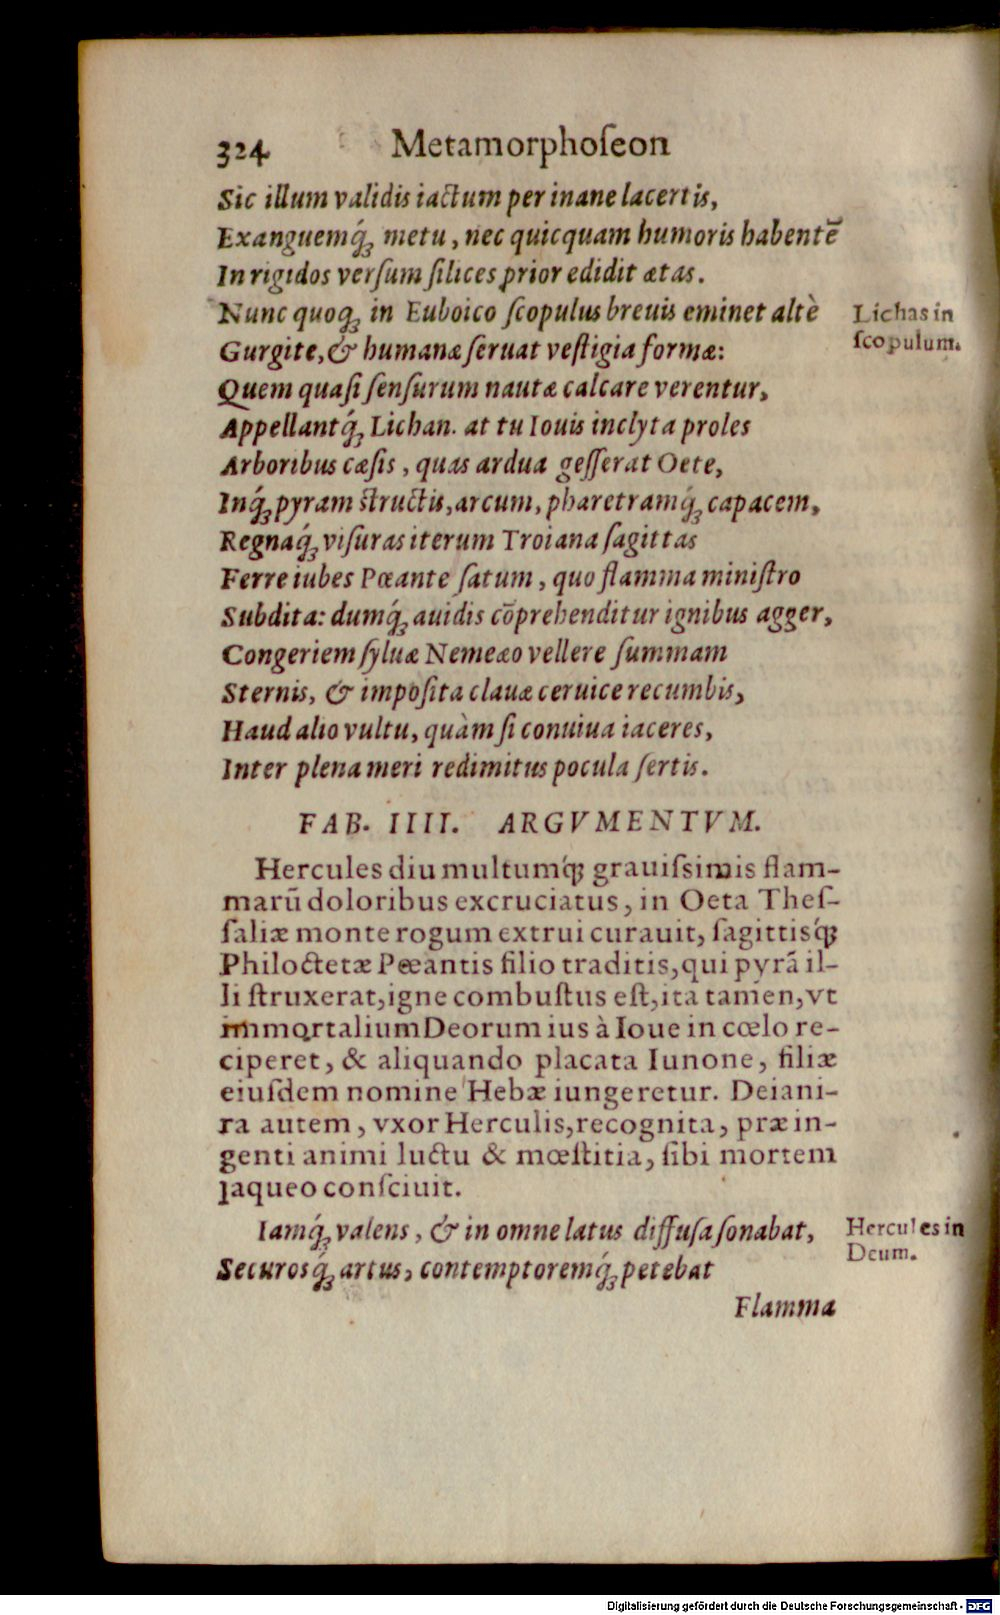 324 Metamorphoſeon
Sic illum validis iactum per inane lacertis,
Exanguemq́ꝫ metu, nec quicquam humoris habentē
In rigidos verſum ſilices prior edidit ætas.
Nunc quoqꝫ in Euboico ſcopulus breuis eminet altè
Gurgite, & humanæ ſeruat veſtigia formæ:
Quem quaſi ſenſurum nautæ calcare verentur,
Appellantq́ꝫ Lichan. at tu Iouis inclyta proles
Arboribus cæſis, quas ardua geſſerat Oete,
Inq́ꝫ pyram structis, arcum, pharetramq́ꝫ capacem,
Regnaq́ꝫ viſuras iterum Troiana ſagittas
Ferre iubes Pœante ſatum, quo flamma miniſtro
Subdita: dumq́ꝫ auidis cōprehenditur ignibus agger,
Congeriem ſyluæ Nemeæo vellere ſummam
Sternis, & impoſita clauæ ceruice recumbis,
Haud alio vultu, quàm ſi conuiua iaceres,
Inter plena meri redimitus pocula ſertis.
Lichas in
ſcopulum.
FAB. IIII. ARGVMENTVM.
Hercules diu multumq́ꝫ grauiſsimis flam-
marū doloribus excruciatus, in Oeta Theſ-
ſaliæ monte rogum extrui curauit, ſagittisq́ꝫ
Philoctetæ Pœantis filio traditis, qui pyrā il-
li ſtruxerat, igne combuſtus eſt, ita tamen, vt
immortalium Deorum ius à Ioue in cœlo re-
ciperet, & aliquando placata Iunone, filiæ
eiuſdem nomine Hebæ iungeretur. Deiani-
ra autem, vxor Herculis, recognita, præ in-
genti animi luctu & mœſtitia, ſibi mortem
laqueo conſciuit.
Iamq́ꝫ valens, & in omne latus diffuſa ſonabat,
Securosq́ꝫ artus, contemptoremq́ꝫ petebat
Hercules in
Deum.
Flamma
Digitalisierung gefördert durch die Deutsche Forschungsgemeinschaft - DFG